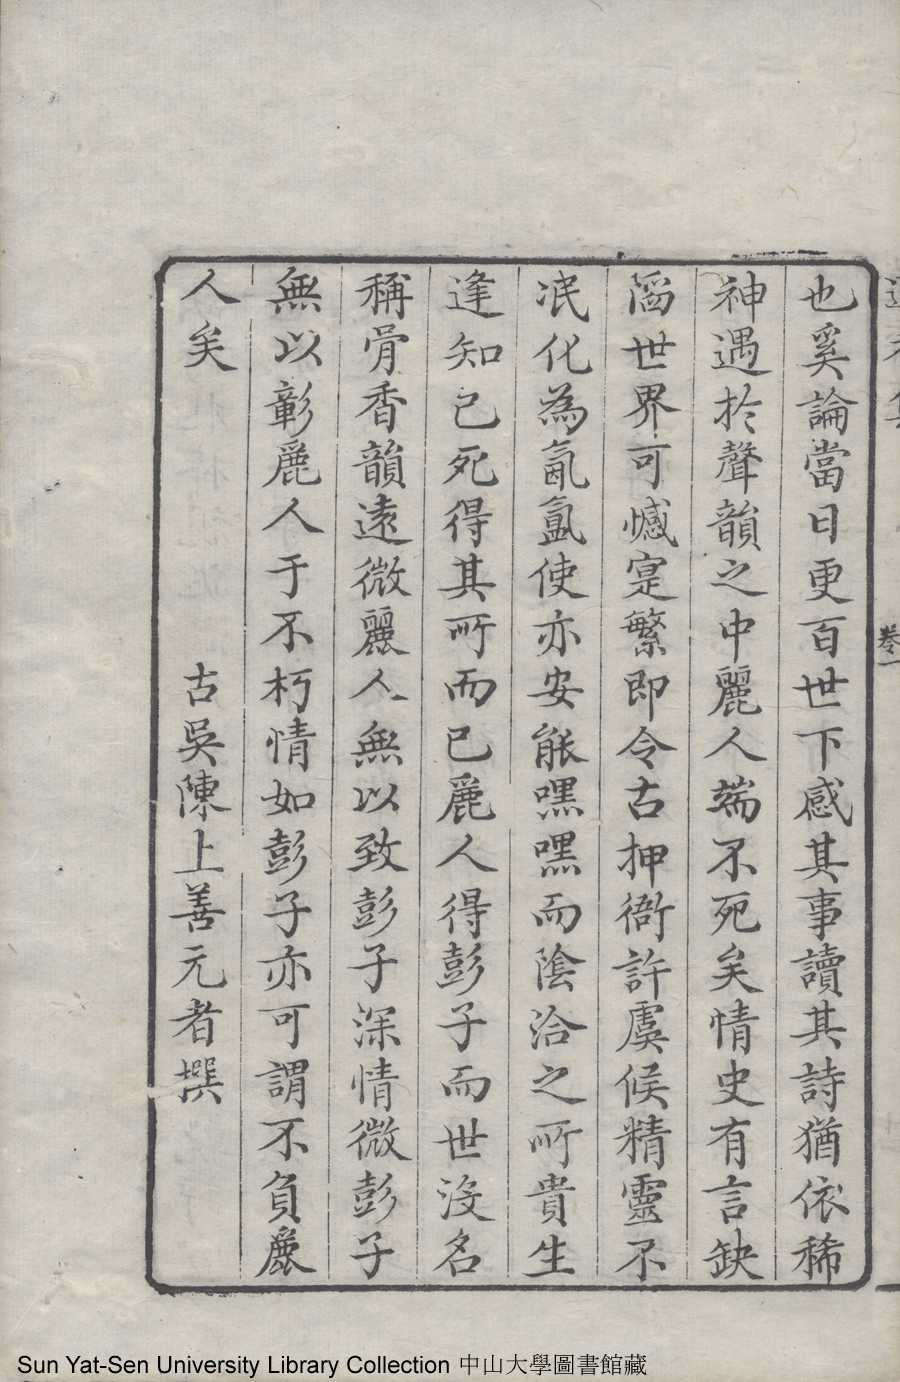 也奚論當日更百世下感其事讀其詩猶依稀
神遇於聲韻之中麗人端不死矣情史有言缺
陷世界可憾寔繁即令古押衙許虞候精靈不
泯化為氤氳使亦安能嘿嘿而陰洽之所貴生
逢知己死得其所而已麗人得彭子而世沒名
稱骨香韻遠微麗人無以致彭子深情微彭子
無以彰麗人于不朽情如彭子亦可謂不負麗
人矣
古吳陳上善元者撰
卷一
Sun Yat-Sen University Library Collection 中山大學圖書館藏